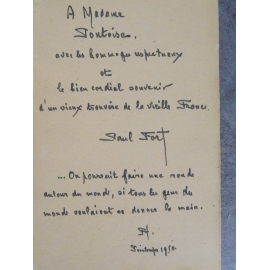 A Madame
Pontoise.
avec les hommages respectueux
et
le bien cordial souvenir
d'un vieux trouvère de la vieille France.
Paul Fort
... On pourrait faire une ronde
autour du monde, si tous les gens du
monde voulaient se donner la main.
Printemps